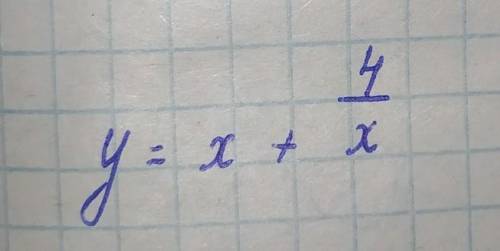 y = x + 4/x